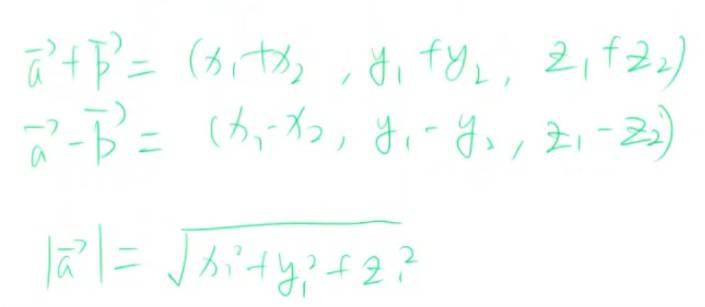 a⃗+b⃗= (x₁+x₂, y₁+y₂, z₁+z₂)
a⃗-b⃗= (x₁-x₂, y₁-y₂, z₁-z₂)
|a⃗|= √(x₁²+y₁²+z₁²)